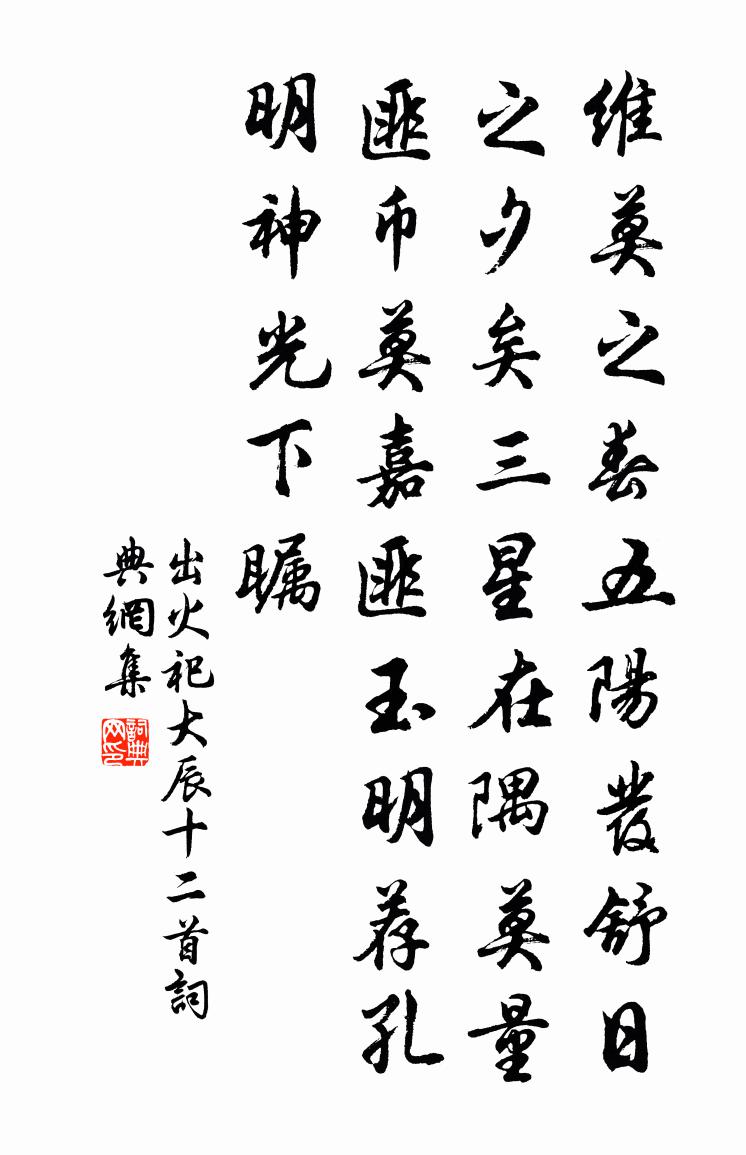 維莫之春五陽發舒日
之夕矣三星在隅莫量
匪币莫嘉匪玉明荐孔
明神光下瞩
出火祀大辰十二首詞
典網集
詞典
网印